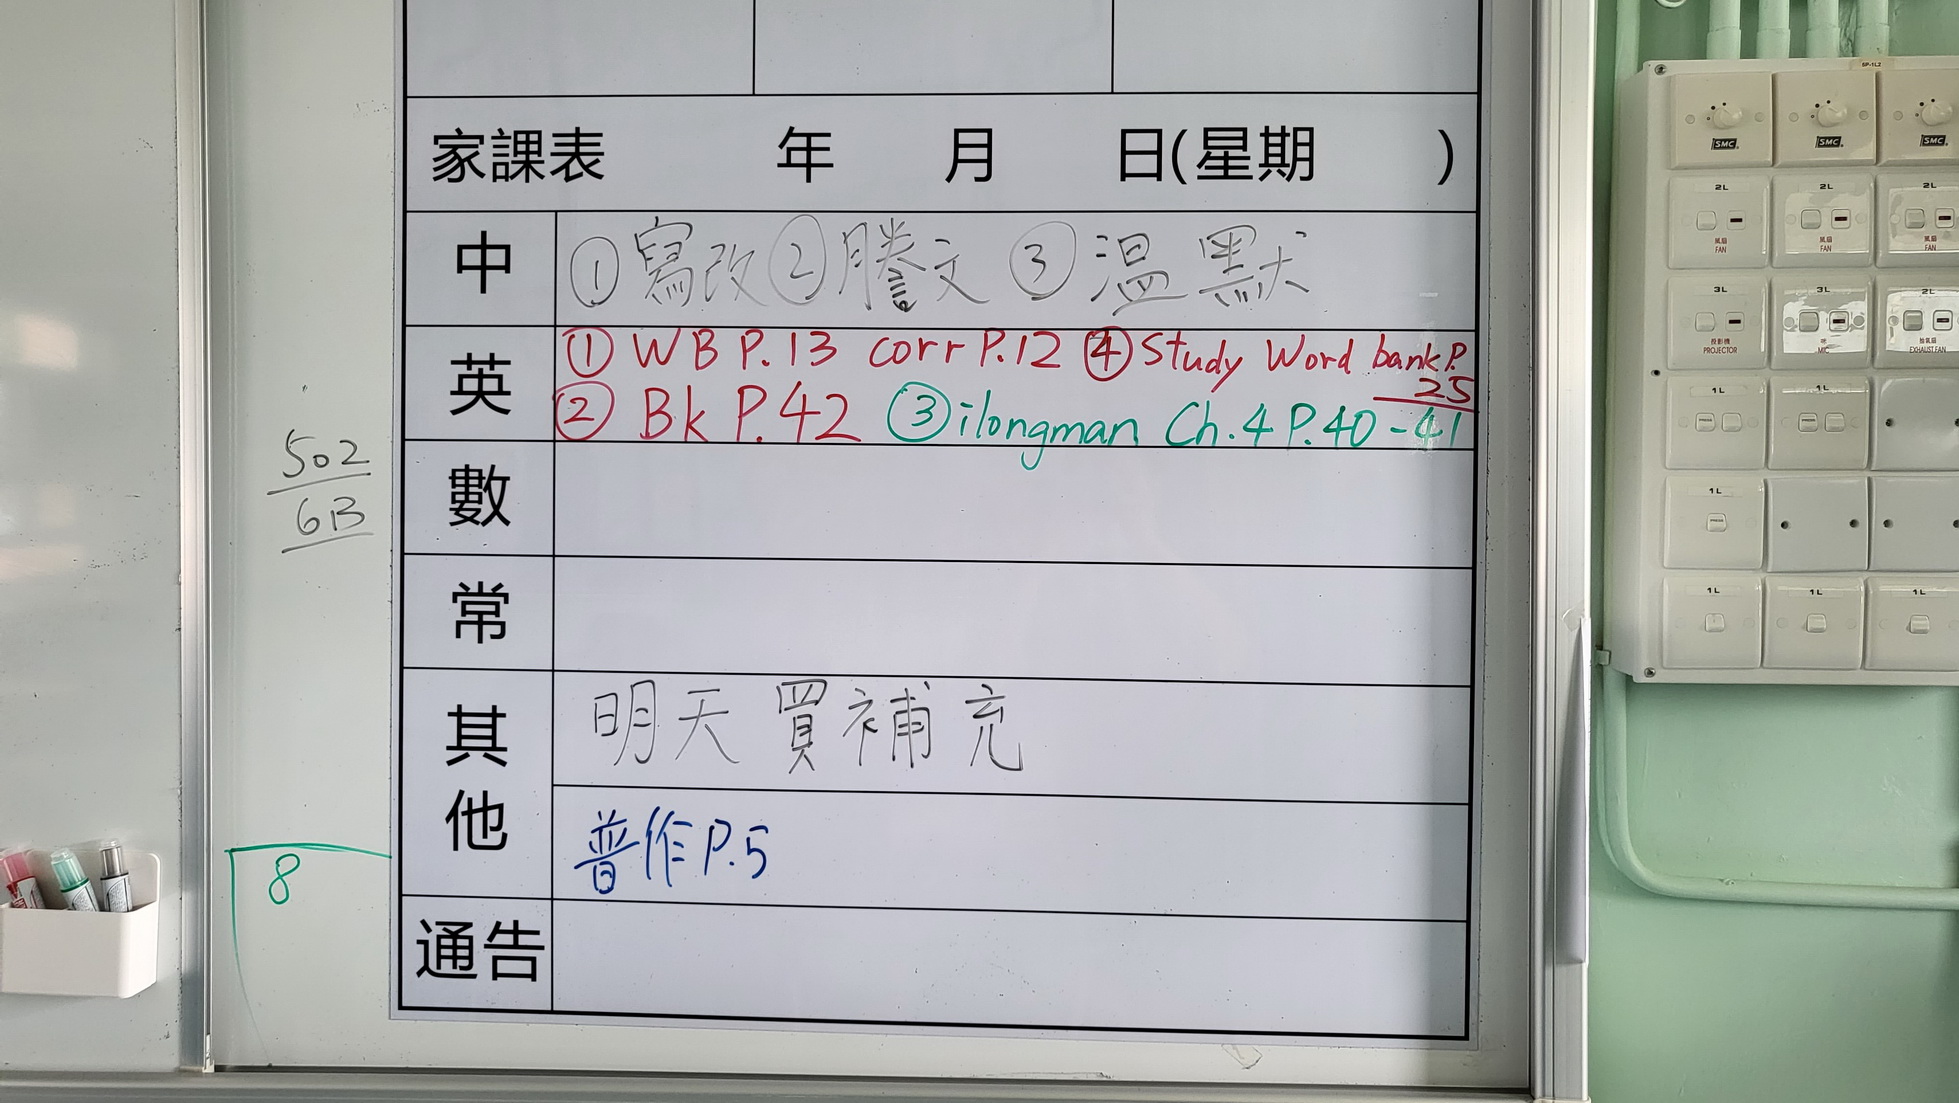 家課表 年 月 日(星期 )
中 ①寫改②謄文③溫默
英 ①WB P.13 corr P.12 ④Study Word bank P.25
②Bk P.42 ③ilongman Ch.4 P.40-41
數
常
其他 明天買補充
普作P.5
通告
502
6B
8
SP-1L2
SMC SMC SMC
2L 2L 2L
風扇 風扇 風扇
FAN FAN FAN
3L 3L 2L
投影機 咪 抽氣扇
PROJECTOR MIC EXHAUST FAN
1L 1L
PRESS PRESS PRESS PRESS
1L
PRESS
1L 1L 1L